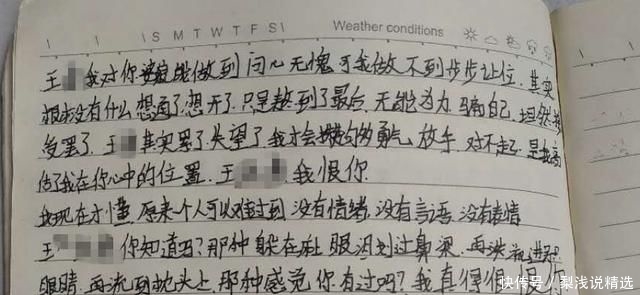 S M T W T F S Weather conditions
王 我对你能做到问心无愧可我做不到步步让位.其实
根本没有什么想通了想开了.只是熬到了最后.无能为力.骗自己.坦然接
受罢了.王 其实累了失望了我才会攒够勇气放手.对不起.是我高
估了我在你心中的位置.王 我恨你
我现在才懂.原来一个人可以难过到没有情绪.没有言语.没有表情
王 你知道吗?那种躲在 眼泪划过鼻梁.再流进
眼睛.再流到枕头上那种感觉你有过吗?我真得很 你
快传号/梨浅说精选